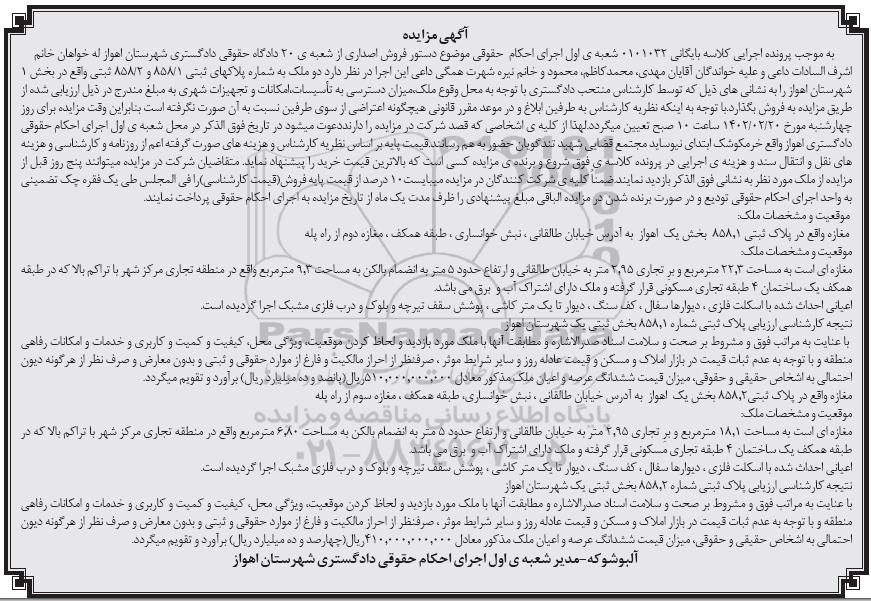 آگهی مزایده
به موجب پرونده اجرایی کلاسه بایگانی ۰۱۰۱۰۳۲ شعبه ی اول اجرای احکام حقوقی موضوع دستور فروش اصداری از شعبه ی ۲۰ دادگاه حقوقی دادگستری شهرستان اهواز له خواهان خانم
اشرف السادات داعی و علیه خواندگان آقایان مهدی، محمدکاظم، محمود و خانم نیره شهرت همگی داعی این اجرا در نظر دارد دو ملک به شماره پلاکهای ثبتی ۸۵۸/۱ و ۸۵۸/۲ ثبتی واقع در بخش ۱
شهرستان اهواز را به نشانی های ذیل که توسط کارشناس منتخب دادگستری با توجه به محل وقوع ملک،میزان دسترسی به تأسیسات،امکانات و تجهیزات شهری به مبلغ مندرج در ذیل ارزیابی شده از
طریق مزایده به فروش بگذارد.با توجه به اینکه نظریه کارشناس به طرفین ابلاغ و در موعد مقرر قانونی هیچگونه اعتراضی از سوی طرفین نسبت به آن صورت نگرفته است بنابراین وقت مزایده برای روز
چهارشنبه مورخ ۱۴۰۲/۰۲/۲۰ ساعت ۱۰ صبح تعیین میگردد.لهذا از کلیه ی اشخاصی که قصد شرکت در مزایده را دارنددعوت میشود در تاریخ فوق الذکر در محل شعبه ی اول اجرای احکام حقوقی
دادگستری اهواز واقع خرمکوشک ابتدای نیوساید مجتمع قضایی شهید تندگویان حضور به هم رسانند.قیمت پایه بر اساس نظریه کارشناس و هزینه های صورت گرفته اعم از روزنامه و کارشناسی و هزینه
های نقل و انتقال سند و هزینه ی اجرایی در پرونده کلاسه ی فوق شروع و برنده ی مزایده کسی است که بالاترین قیمت خرید را پیشنهاد نماید. متقاضیان شرکت در مزایده میتوانند پنج روز قبل از
مزایده از ملک مورد نظر به نشانی فوق الذکر بازدید نمایند.ضمناً کلیه ی شرکت کنندگان در مزایده میبایست ۱۰ درصد از قیمت پایه فروش(قیمت کارشناسی)را فی المجلس طی یک فقره چک تضمینی
به واحد اجرای احکام حقوقی تودیع و در صورت برنده شدن در مزایده الباقی مبلغ پیشنهادی را ظرف مدت یک ماه از تاریخ مزایده به اجرای احکام حقوقی پرداخت نمایند.
موقعیت و مشخصات ملک:
مغازه واقع در پلاک ثبتی ۸۵۸,۱ بخش یک اهواز به آدرس خیابان طالقانی ، نبش خوانساری ، طبقه همکف ، مغازه دوم از راه پله
موقعیت و مشخصات ملک:
مغازه ای است به مساحت ۲۲,۳ مترمربع و بر تجاری ۲,۹۵ متر به خیابان طالقانی و ارتفاع حدود ۵ متر به انضمام بالکن به مساحت ۹,۳ مترمربع واقع در منطقه تجاری مرکز شهر با تراکم بالا که در طبقه
همکف یک ساختمان ۴ طبقه تجاری مسکونی قرار گرفته و ملک دارای اشتراک آب و برق می باشد.
اعیانی احداث شده با اسکلت فلزی ، دیوارها سفال ، کف سنگ ، دیوار تا یک متر کاشی ، پوشش سقف تیرچه و بلوک و درب فلزی مشبک اجرا گردیده است.
نتیجه کارشناسی ارزیابی پلاک ثبتی شماره ۸۵۸,۱ بخش ثبتی یک شهرستان اهواز
با عنایت به مراتب فوق و مشروط بر صحت و سلامت اسناد صدرالاشاره و مطابقت آنها با ملک مورد بازدید و لحاظ کردن موقعیت، ویژگی محل، کیفیت و کمیت و کاربری و خدمات و امکانات رفاهی
منطقه و با توجه به عدم ثبات قیمت در بازار املاک و مسکن و قیمت عادله روز و سایر شرایط موثر ، صرفنظر از احراز مالکیت و فارغ از موارد حقوقی و ثبتی و بدون معارض و صرف نظر از هرگونه دیون
احتمالی به اشخاص حقیقی و حقوقی، میزان قیمت ششدانگ عرصه و اعیان ملک مذکور معادل ۵۱۰,۰۰۰,۰۰۰,۰۰۰ریال(پانصد و ده میلیارد ریال) برآورد و تقویم میگردد.
مغازه واقع در پلاک ثبتی۸۵۸,۲ بخش یک اهواز به آدرس خیابان طالقانی ، نبش خوانساری، طبقه همکف ، مغازه سوم از راه پله
موقعیت و مشخصات ملک:
مغازه ای است به مساحت ۱۸,۱ مترمربع و بر تجاری ۲,۹۵ متر به خیابان طالقانی و ارتفاع حدود ۵ متر به انضمام بالکن به مساحت ۶,۸۰ مترمربع واقع در منطقه تجاری مرکز شهر با تراکم بالا که در
طبقه همکف یک ساختمان ۴ طبقه تجاری مسکونی قرار گرفته و ملک دارای اشتراک آب و برق می باشد.
اعیانی احداث شده با اسکلت فلزی ، دیوارها سفال ، کف سنگ ، دیوار تا یک متر کاشی ، پوشش سقف تیرچه و بلوک و درب فلزی مشبک اجرا گردیده است.
نتیجه کارشناسی ارزیابی پلاک ثبتی شماره ۸۵۸,۲ بخش ثبتی یک شهرستان اهواز
با عنایت به مراتب فوق و مشروط بر صحت و سلامت اسناد صدرالاشاره و مطابقت آنها با ملک مورد بازدید و لحاظ کردن موقعیت، ویژگی محل، کیفیت و کمیت و کاربری و خدمات و امکانات رفاهی
منطقه و با توجه به عدم ثبات قیمت در بازار املاک و مسکن و قیمت عادله روز و سایر شرایط موثر ، صرفنظر از احراز مالکیت و فارغ از موارد حقوقی و ثبتی و بدون معارض و صرف نظر از هرگونه دیون
احتمالی به اشخاص حقیقی و حقوقی، میزان قیمت ششدانگ عرصه و اعیان ملک مذکور معادل ۴۱۰,۰۰۰,۰۰۰,۰۰۰ریال(چهارصد و ده میلیارد ریال) برآورد و تقویم میگردد.
آلبوشوکه-مدیر شعبه ی اول اجرای احکام حقوقی دادگستری شهرستان اهواز
ParsNamadData
پایگاه اطلاع رسانی مناقصه و مزایده
۰۲۱-۸۸۳۴۹۶۷۰-۵